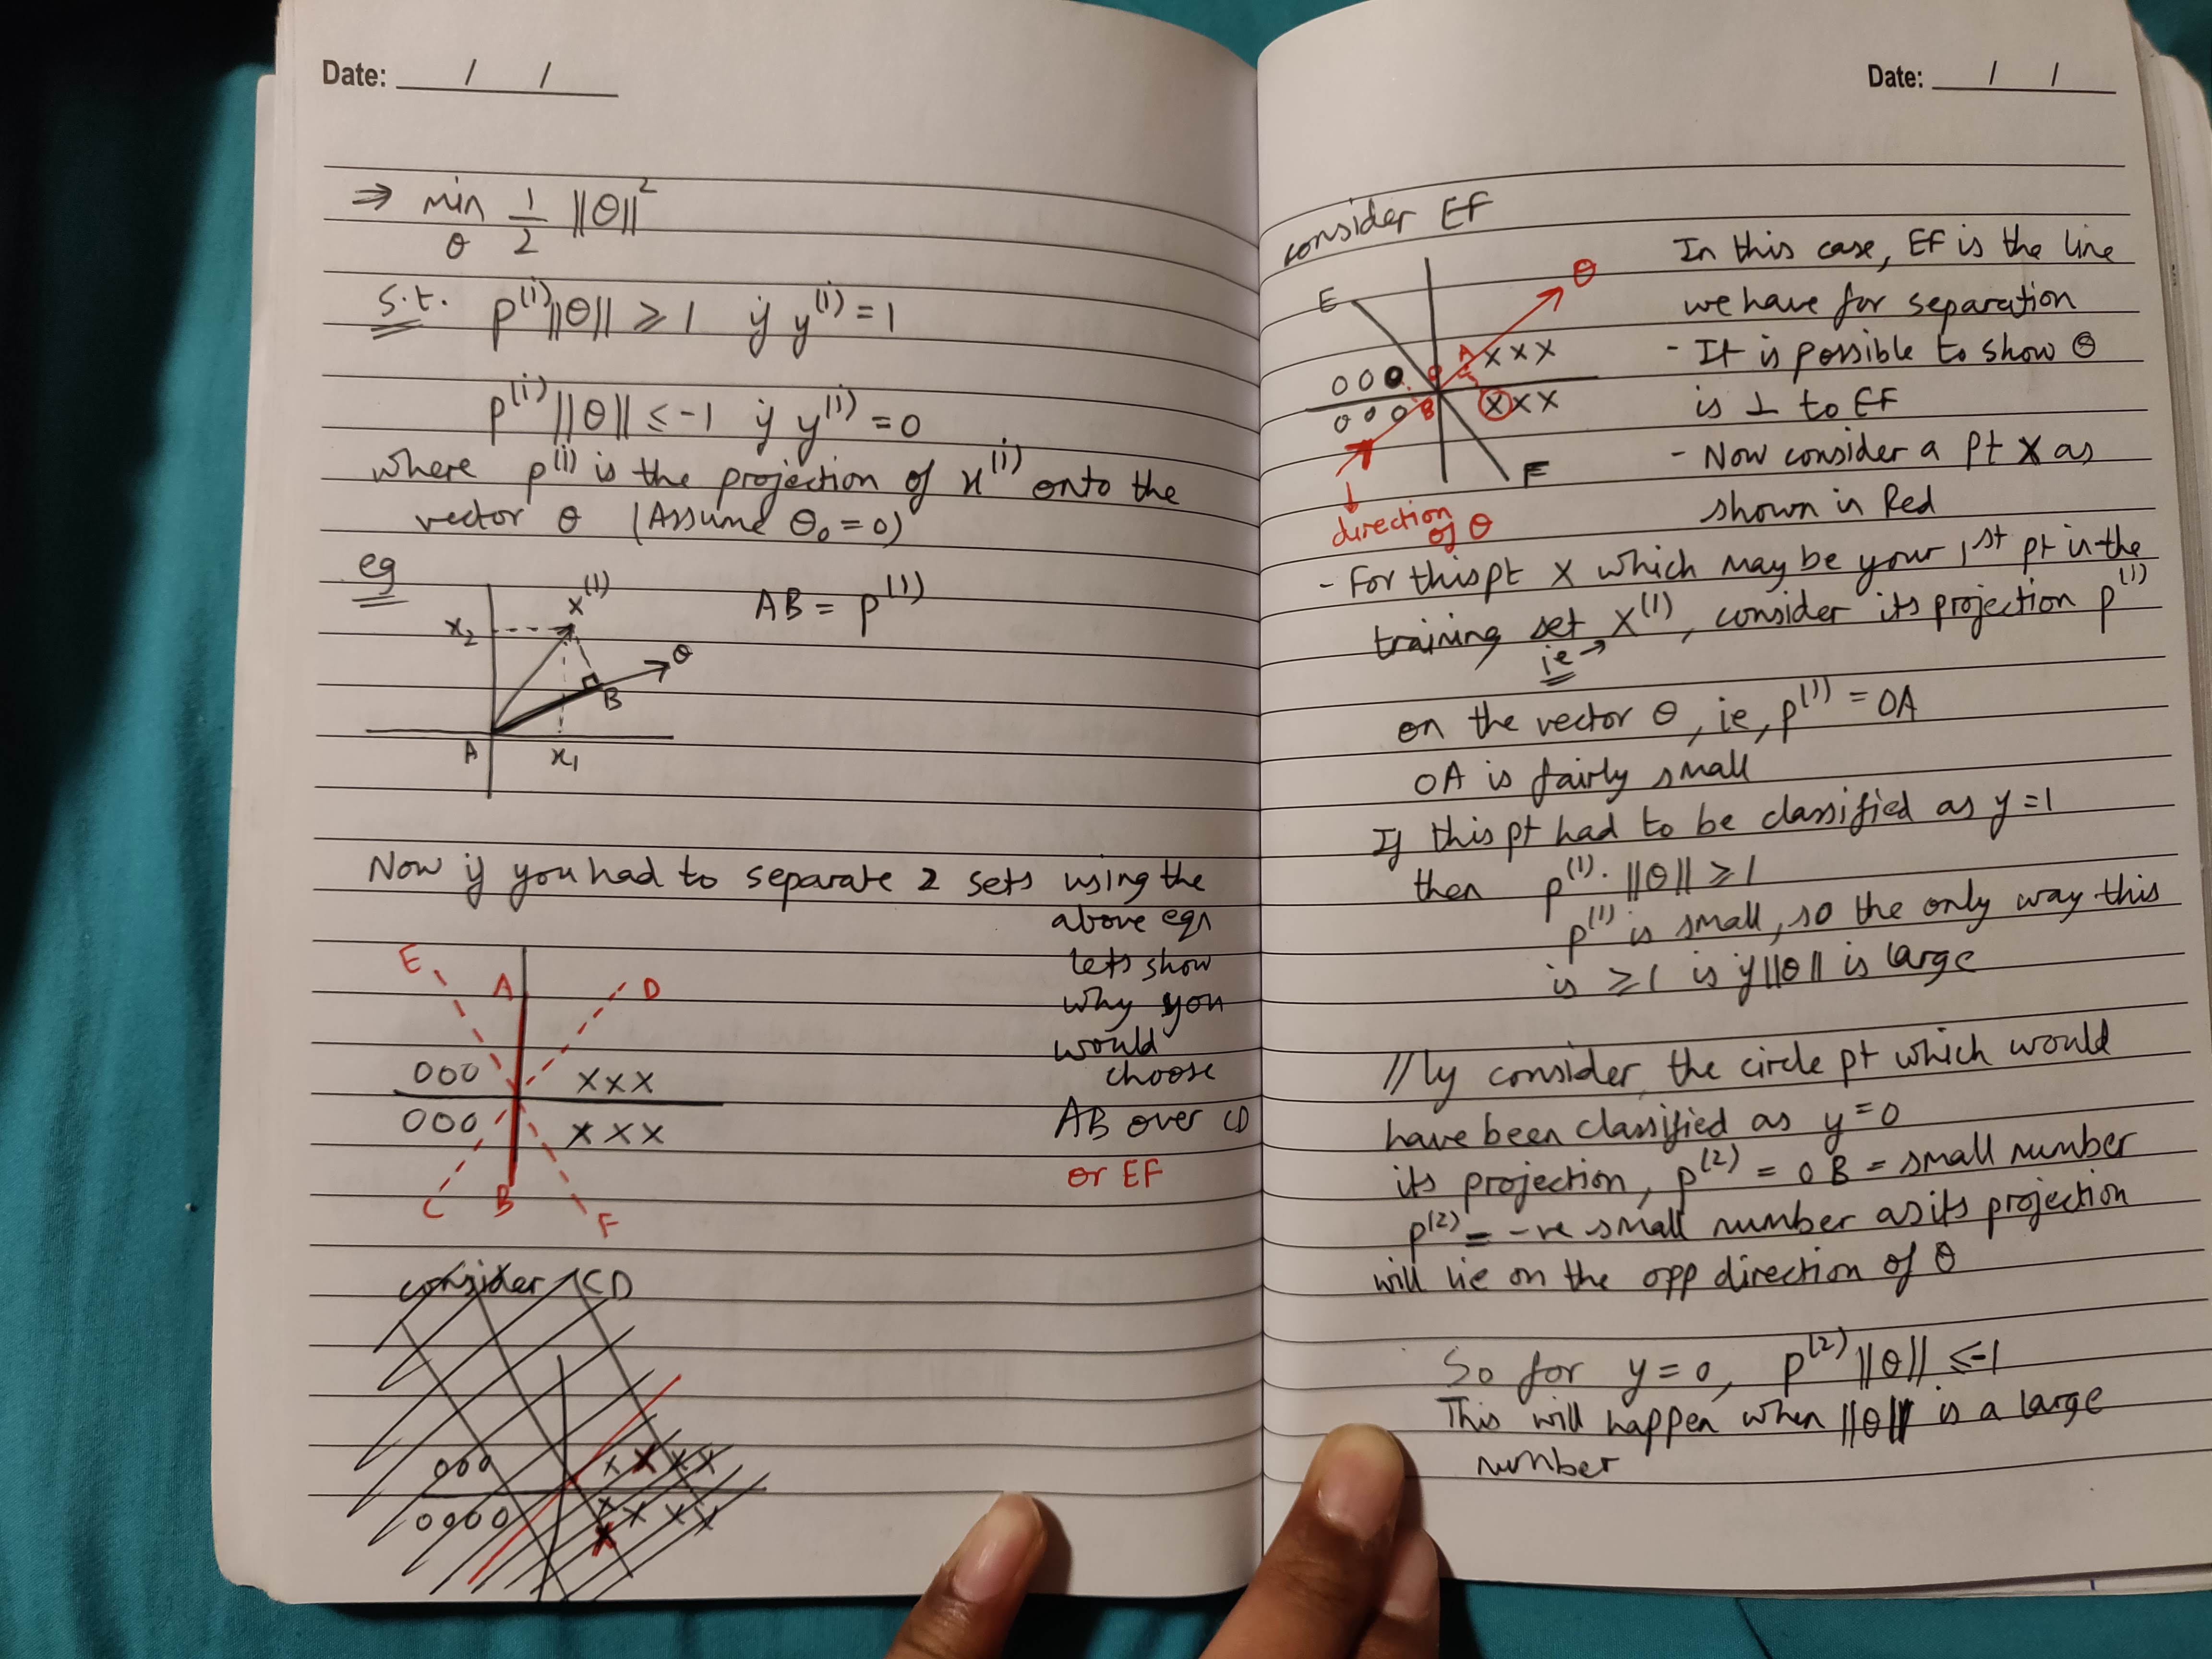 Date: / /
⇒ min 1/2 ||θ||²
θ
s.t. p⁽ⁱ⁾||θ|| ≥ 1 if y⁽ⁱ⁾ = 1
p⁽ⁱ⁾||θ|| ≤ -1 if y⁽ⁱ⁾ = 0
where p⁽ⁱ⁾ is the projection of x⁽ⁱ⁾ onto the
vector θ (Assume θ₀ = 0)
eg
x⁽¹⁾
AB = p⁽¹⁾
x₂
θ
B
A
x₁
Now if you had to separate 2 sets using the
above eqn
lets show
why you
would
choose
AB over CD
or EF
E A D
000 xxx
000 xxx
C B F
consider CD
000 x x x x
0000 x x x x
x
Date: / /
consider EF
E θ
000 A x x x
O
000 B x x x
F
direction
of θ
In this case, EF is the line
we have for separation
- It is possible to show θ
is ⊥ to EF
- Now consider a pt x as
shown in Red
- For this pt x which may be your 1st pt in the
training set x⁽¹⁾, consider its projection p⁽¹⁾
ie →
on the vector θ, ie, p⁽¹⁾ = OA
OA is fairly small
If this pt had to be classified as y = 1
then p⁽¹⁾. ||θ|| ≥ 1
p⁽¹⁾ is small, so the only way this
is ≥ 1 is if ||θ|| is large
//ly consider the circle pt which would
have been classified as y = 0
its projection, p⁽²⁾ = OB = small number
p⁽²⁾ = -ve small number as its projection
will lie on the opp direction of θ
So for y = 0, p⁽²⁾ ||θ|| ≤ -1
This will happen when ||θ|| is a large
number